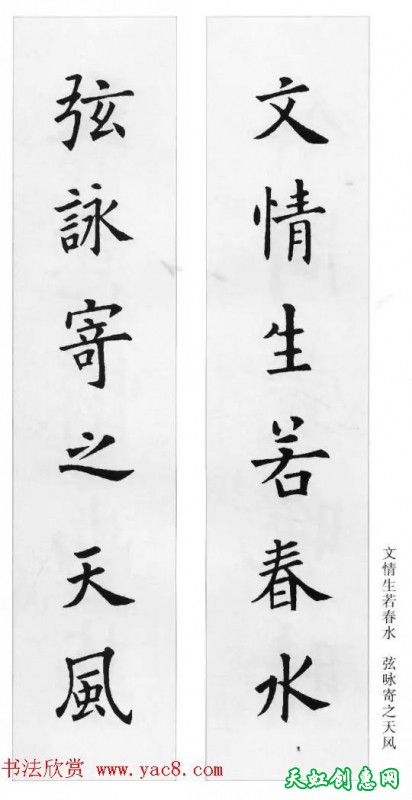 文情生若春水
弦詠寄之天風
文情生若春水 弦咏寄之天风
书法欣赏 www.yac8.com
天虹创意网